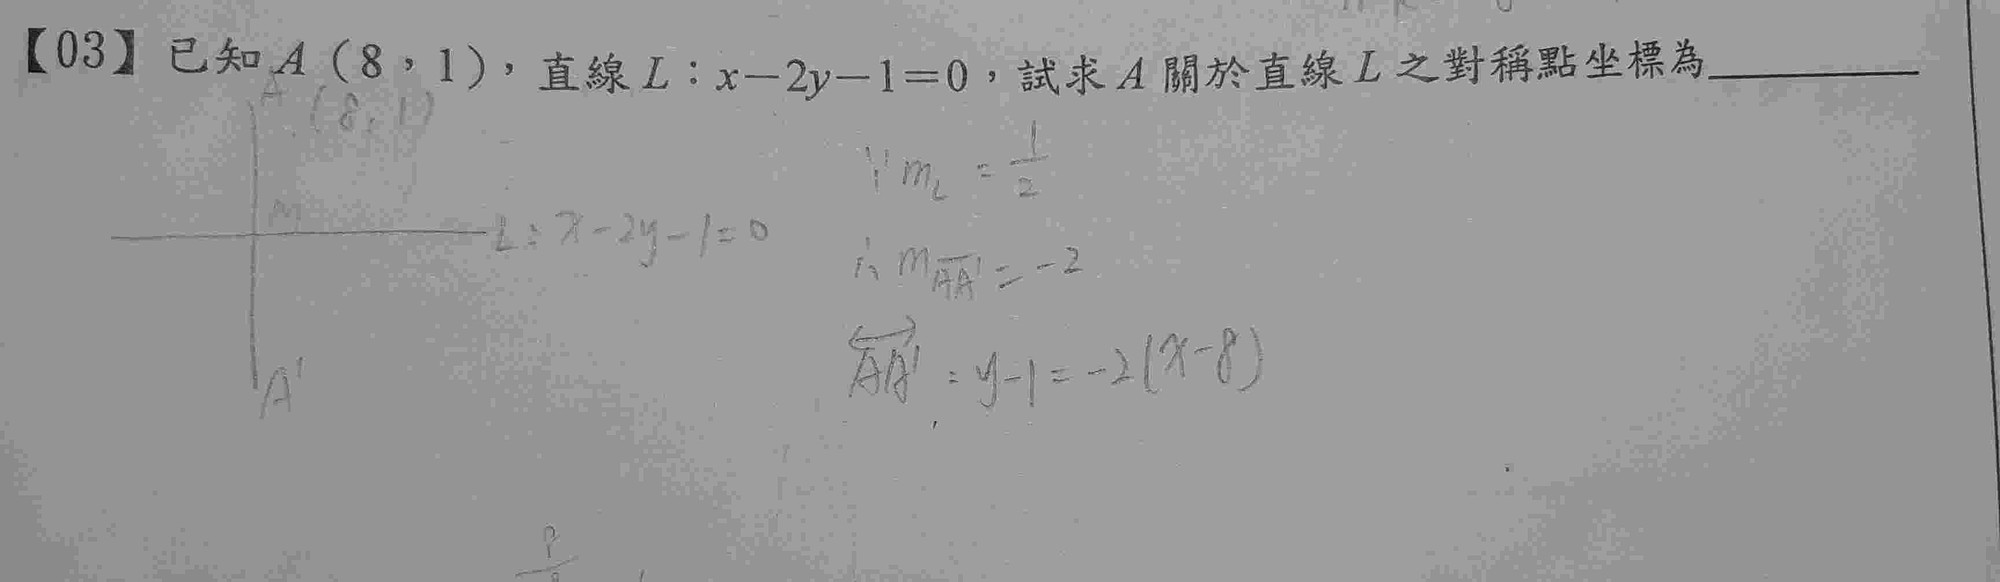 【03】已知 A（8，1），直線 L：x－2y－1＝0，試求 A 關於直線 L 之對稱點坐標為
A (8, 1)
∵ m_L = 1/2
M
L: x-2y-1=0
∴ m_AA' = -2
AA' : y-1=-2(x-8)
A'